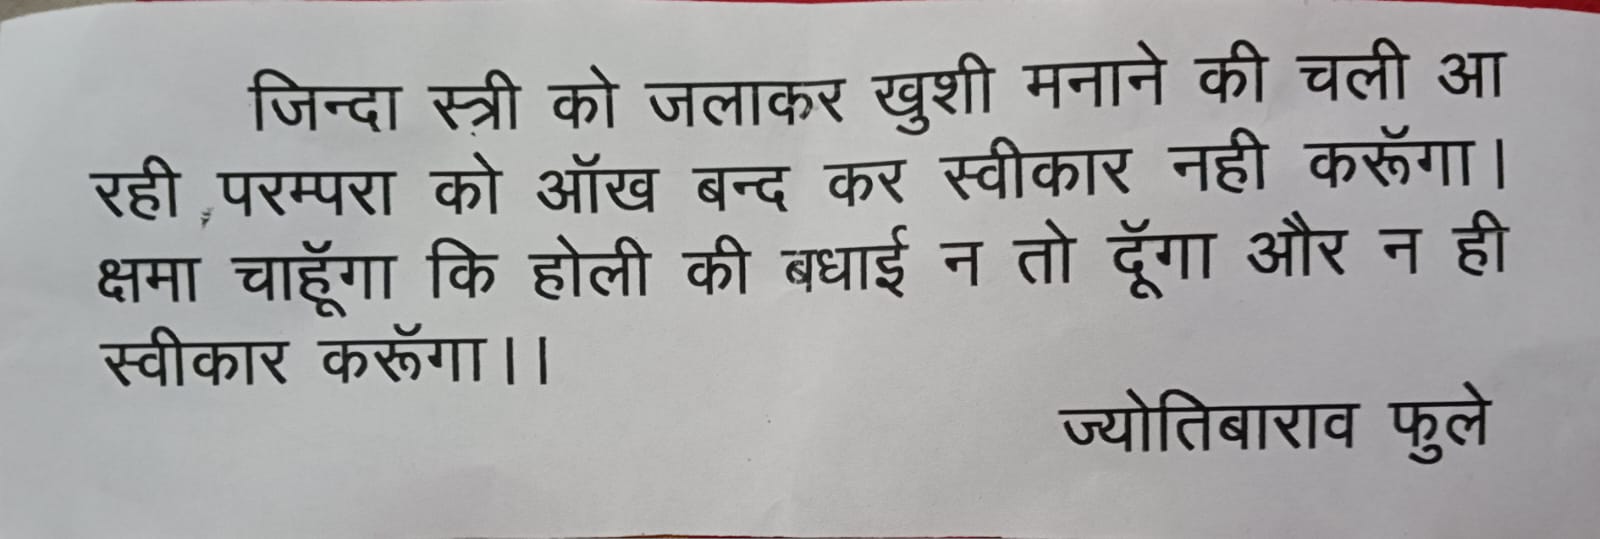 जिन्दा स्त्री को जलाकर खुशी मनाने की चली आ
रही परम्परा को ऑख बन्द कर स्वीकार नही करूॅगा।
क्षमा चाहूॅगा कि होली की बधाई न तो दूॅगा और न ही
स्वीकार करूॅगा।।
ज्योतिबाराव फुले